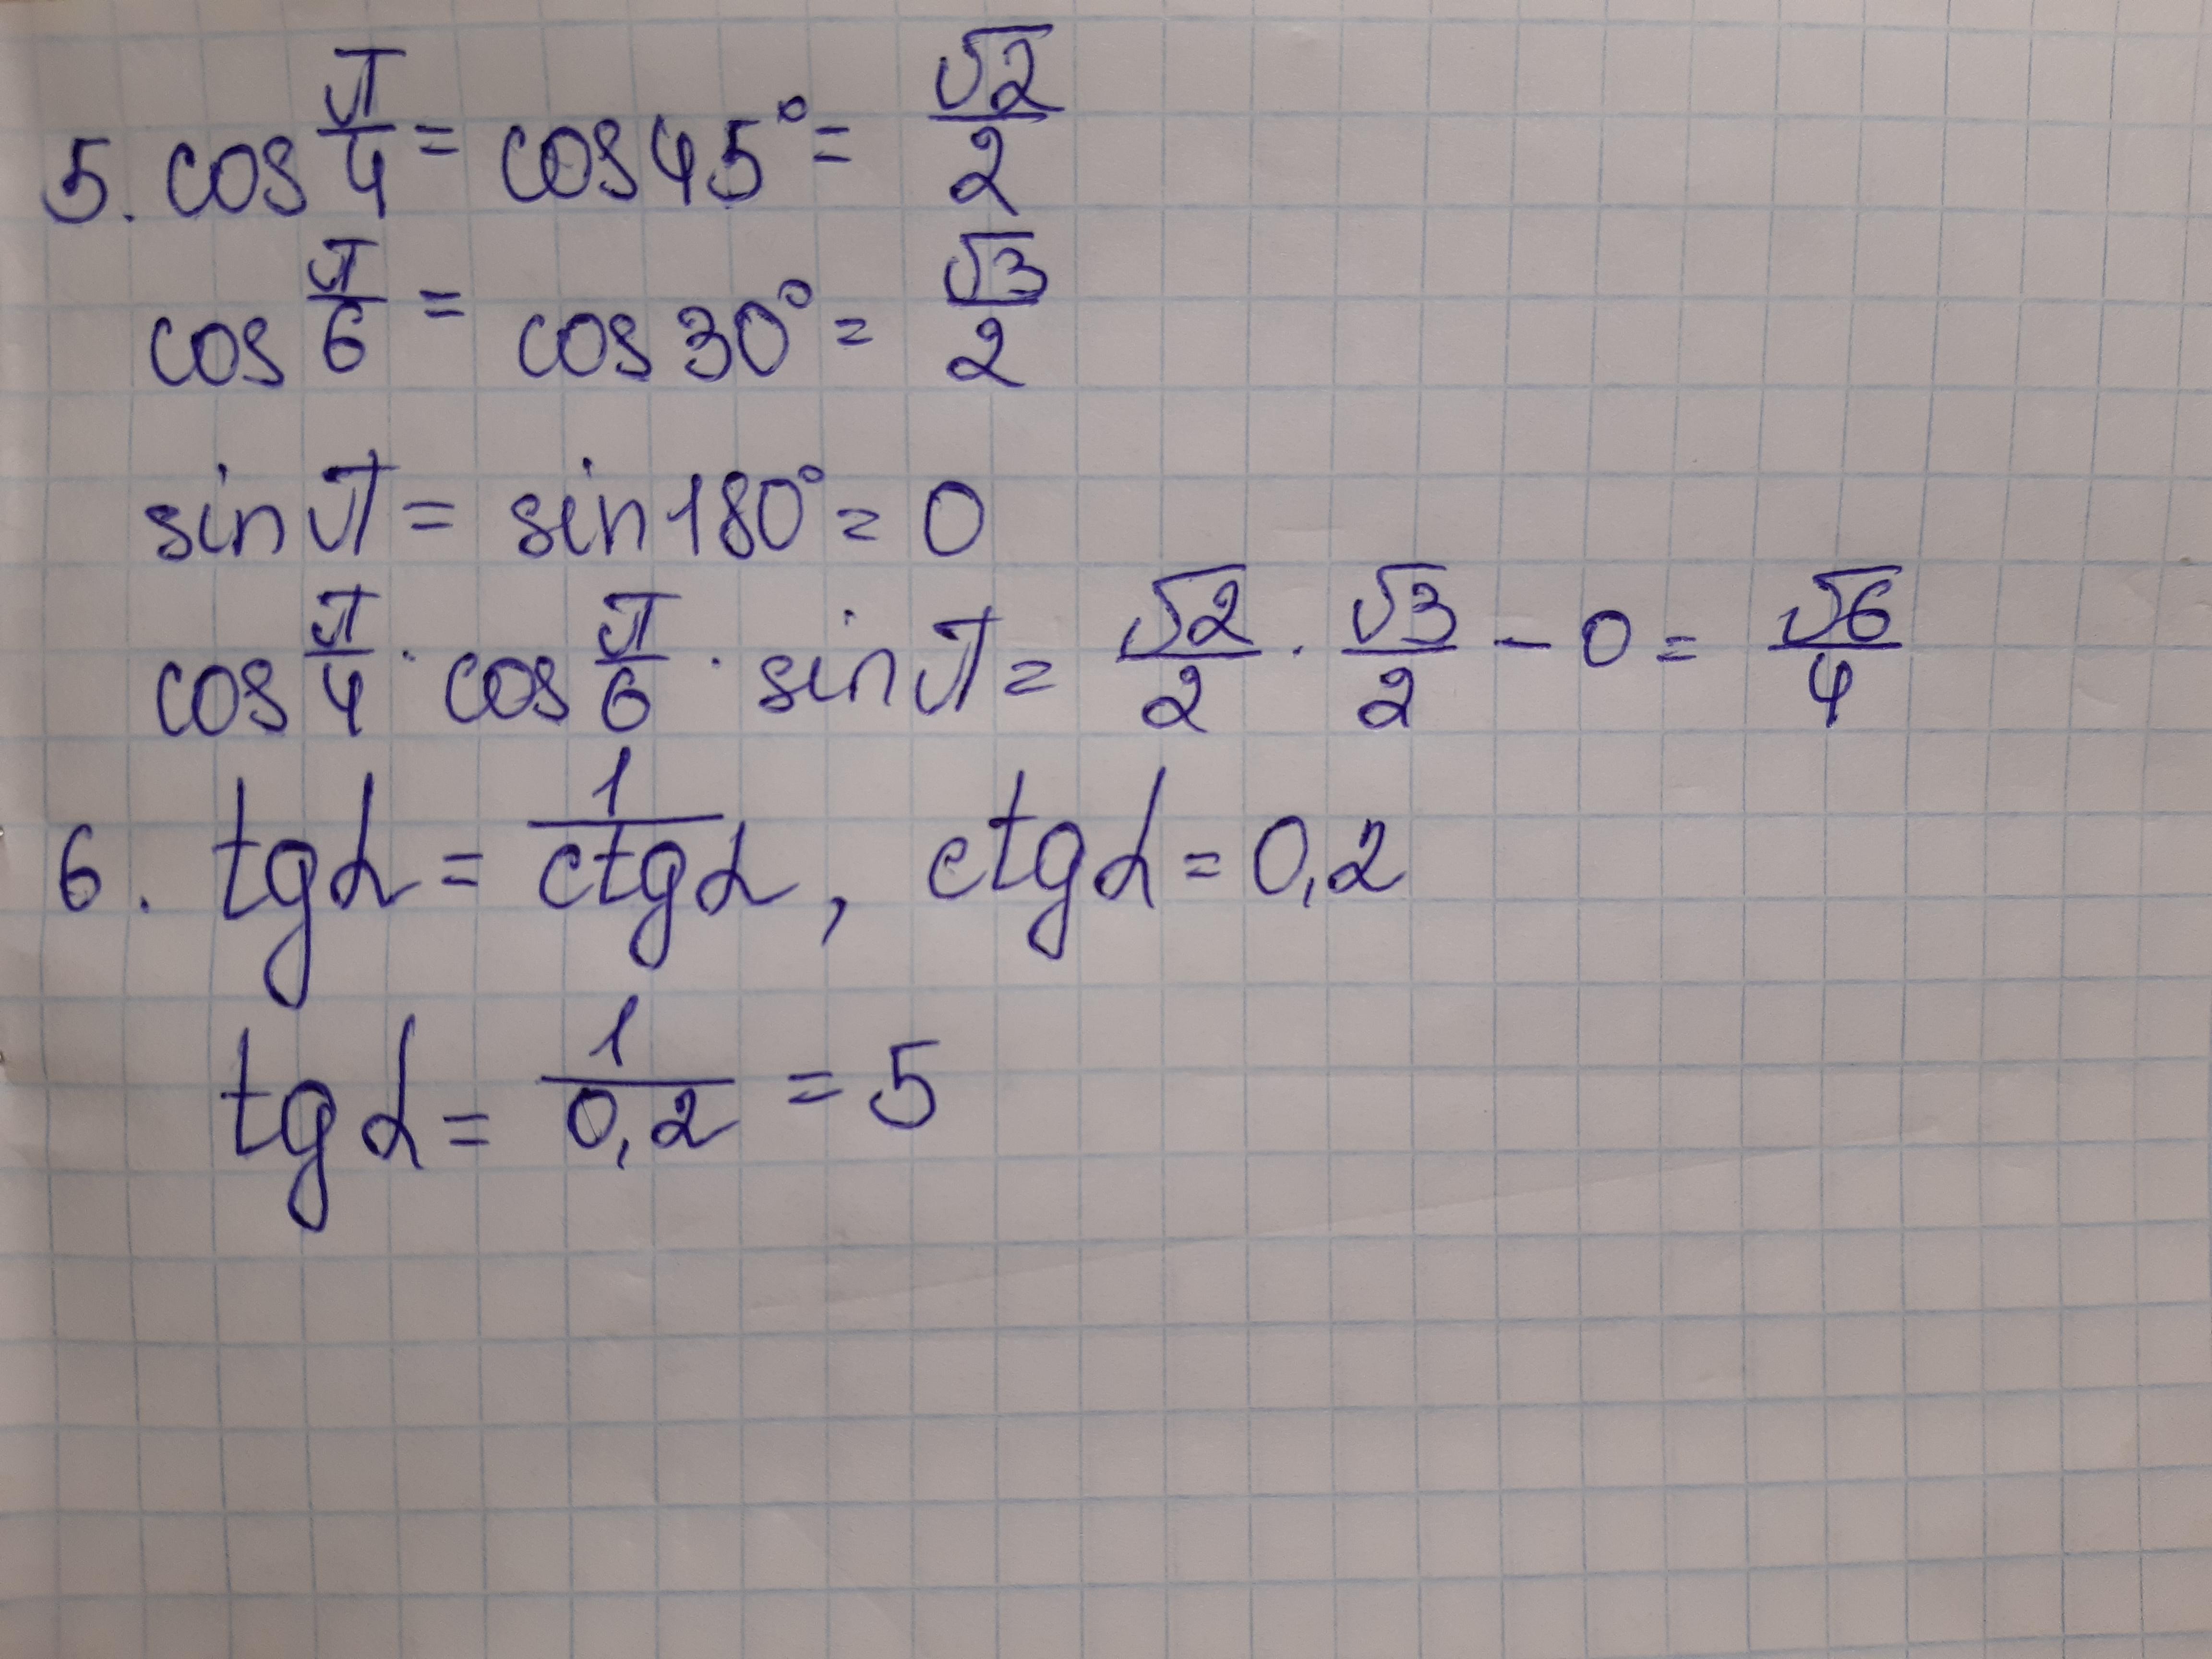 5. cos π/4 = cos 45° = √2/2
cos π/6 = cos 30° = √3/2
sin π = sin 180° = 0
cos π/4 · cos π/6 · sin π = √2/2 · √3/2 - 0 = √6/4
6. tg α = 1/ctg α, ctg α = 0,2
tg α = 1/0,2 = 5